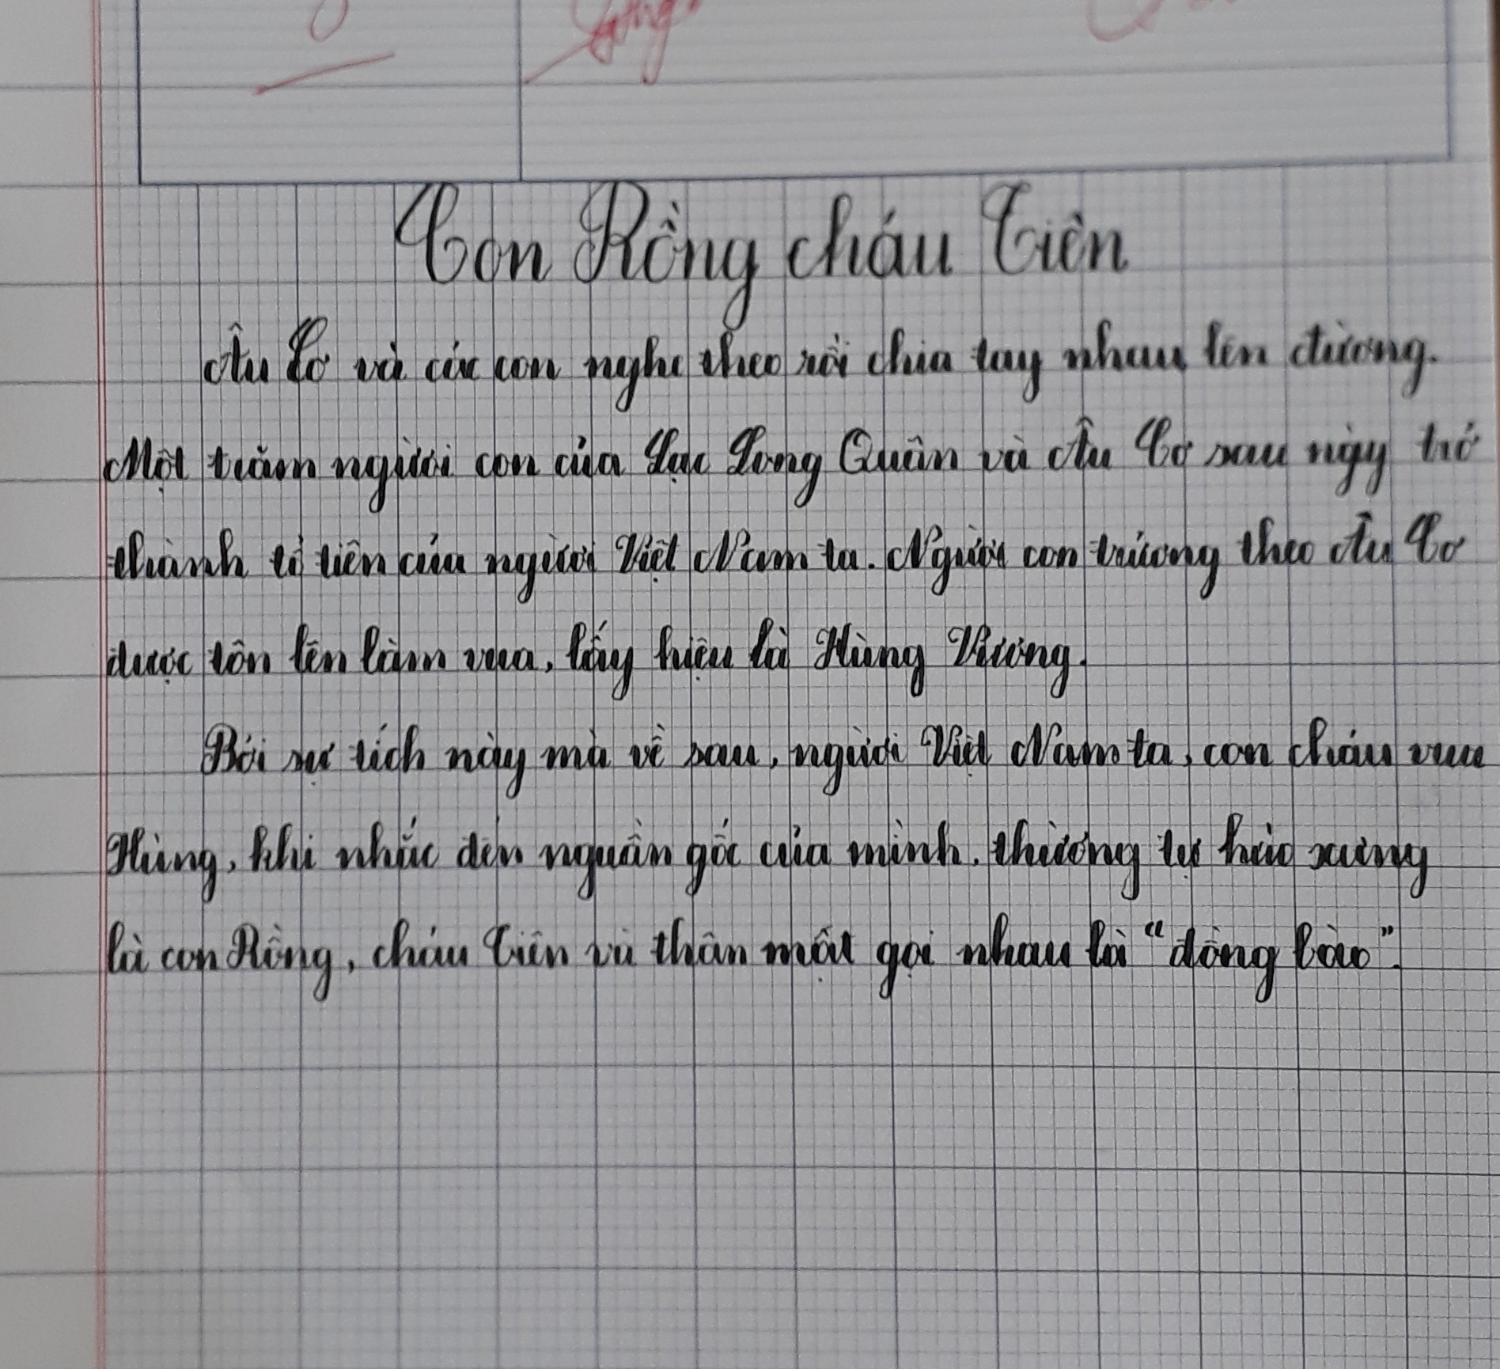 Con Rồng cháu Tiên
Âu Cơ và các con nghe theo rồi chia tay nhau lên đường.
Một trăm người con của Lạc Long Quân và Âu Cơ sau này trở
thành tổ tiên của người Việt Nam ta. Người con trưởng theo Âu Cơ
được tôn lên làm vua, lấy hiệu là Hùng Vương.
Bởi sự tích này mà về sau, người Việt Nam ta, con cháu vua
Hùng, khi nhắc đến nguồn gốc của mình, thường tự hào xưng
là con Rồng, cháu Tiên và thân mật gọi nhau là "đồng bào".